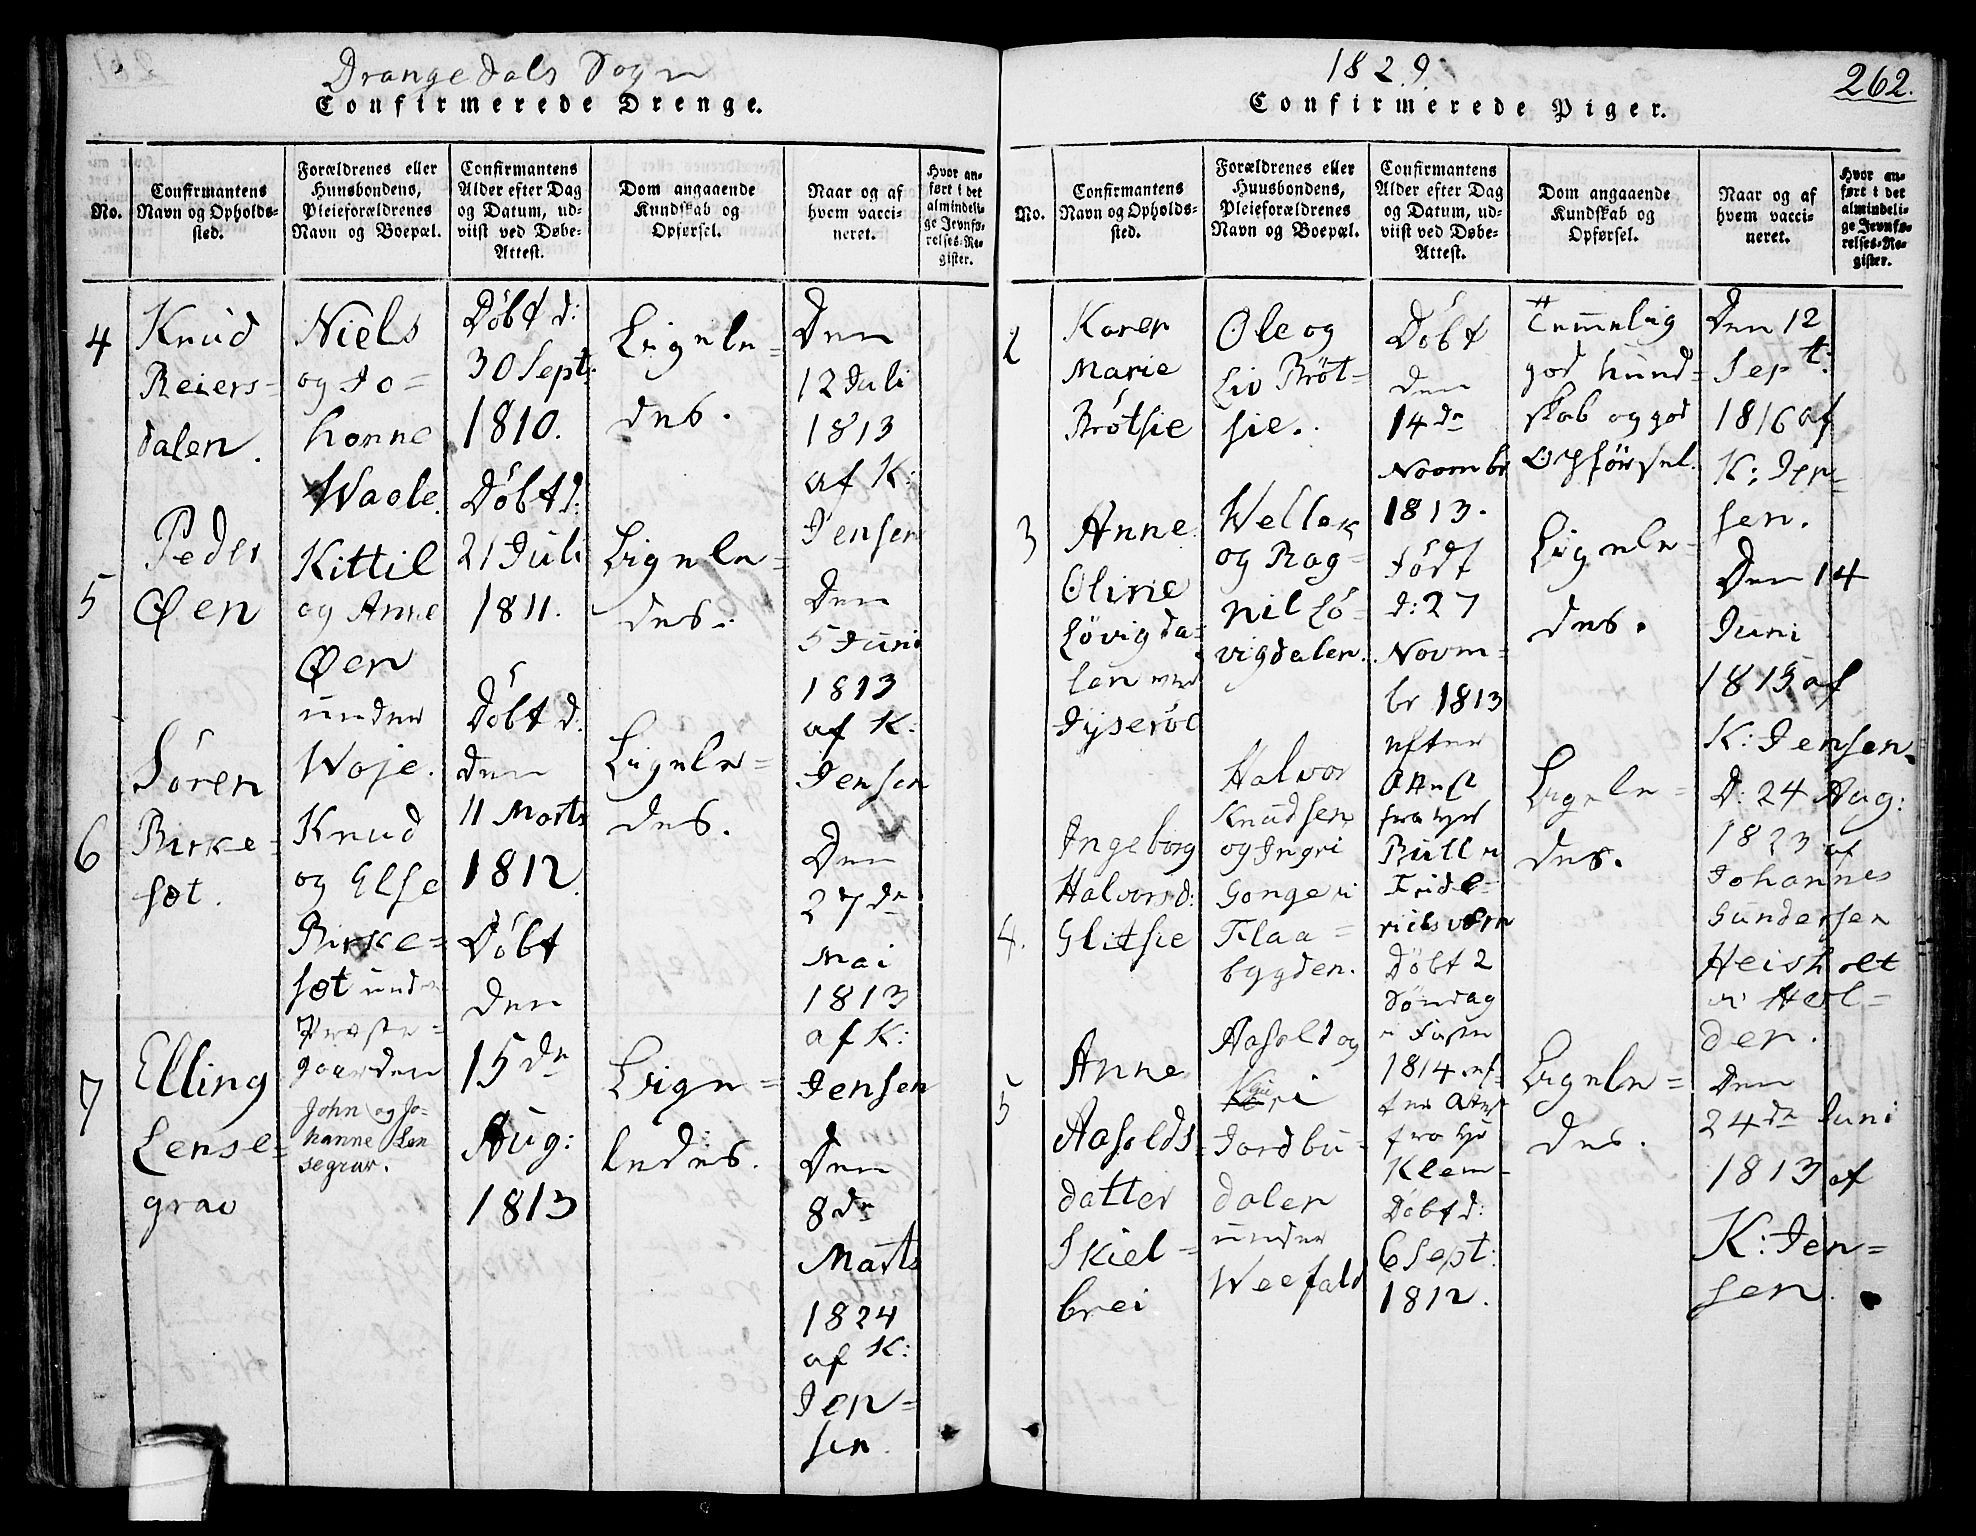 Drangedals Sogn
Confirmerede Drenge.
No.
Confirmantens
Navn og Opholds-
sted.
Forældrenes eller
Huusbondens,
Pleieforældrenes
Navn og Boepæl.
Confirmantens
Alder efter Dag
og Datum, ud-
viist ved Døbe-
Attest.
Dom angaaende
Kundskab og
Opførsel.
Naar og af
hvem vacci-
neret.
Hvor an-
ført i det
almindeli-
ge Jevnfø-
relses-Re-
gister.
4
Knud
Reiers-
dalen.
Niels
og Jo=
hanne
Waale.
Døbt d:
30 Sept:
1810.
Ligele=
des.
Den
12 Juli
1813
af K:
Jensen
5
Peder
Øen
Kittil
og Anne
Øen
under
Woje.
Døbt d:
21 Juli
1811.
Ligele=
des.
Den
5 Juni
1813
af K:
Jensen
6
Sören
Birke=
sæt.
Knud
og Else
Birke=
sæt under
Præste=
gaarden
Døbt d:
den
11 Marts
1812.
Ligele=
des.
Den
27de
Mai
1813
af K:
Jensen
7
Elling
Lense=
grav
John og Jo=
hanne Len
segrav.
Døbt
den
15de
Aug:
1813
Lige=
ledes.
Den
8de
Marts
1824
af K:
Jen=
sen.
1829
262.
Confirmerede Piger.
No.
Confirmantens
Navn og Opholds-
sted.
Forældrenes eller
Huusbondens,
Pleieforældrenes
Navn og Boepæl.
Confirmantens
Alder efter Dag
og Datum, ud-
viist ved Døbe-
Attest.
Dom angaaende
Kundskab og
Opførsel.
Naar og af
hvem vacci-
neret.
Hvor an-
ført i det
almindeli-
ge Jevnfø-
relses-Re-
gister.
2
Karen
Marie
Brötsie
Ole og
Liv Bröt-
sie.
Døbt
den
14de
Novembr
1813.
Temelig
god Kund=
skab og god
Opførsel.
Den 12
Sept:
1816 af
K: Jen=
sen.
3
Anne
Oline
Lövigda-
len
Wellek
og Rag=
nil Lö-
vigdalen.
Födt
d: 27
Novm=
br 1813
efter
Attest
fra Hr
Bull
Fride=
richsværn
Ligele=
des.
Den 14
Juni
1815 af
K: Jensen.
4.
Ingeborg
Halvorsd:
Glitsie
Halvor
Knudsen
og Ingri
Gongeri
Flaa=
bygden.
Døbt 2
Söndag
i Faste
1814 ef=
ter Attest
fra Hr
Klem-
Ligele=
des.
D: 24 Aug:
1823 af
Johannes
Gundersen
Heisholt
i Hol=
den.
5
Anne
Aasolds=
datter
Skiel=
brei
Aasold og
Kari
Jordbu-
dalen
under
Weefald
Døbt d:
6 Sept:
1812.
Ligele=
des.
Den
24de Juni
1813 af
K: Jen=
sen.